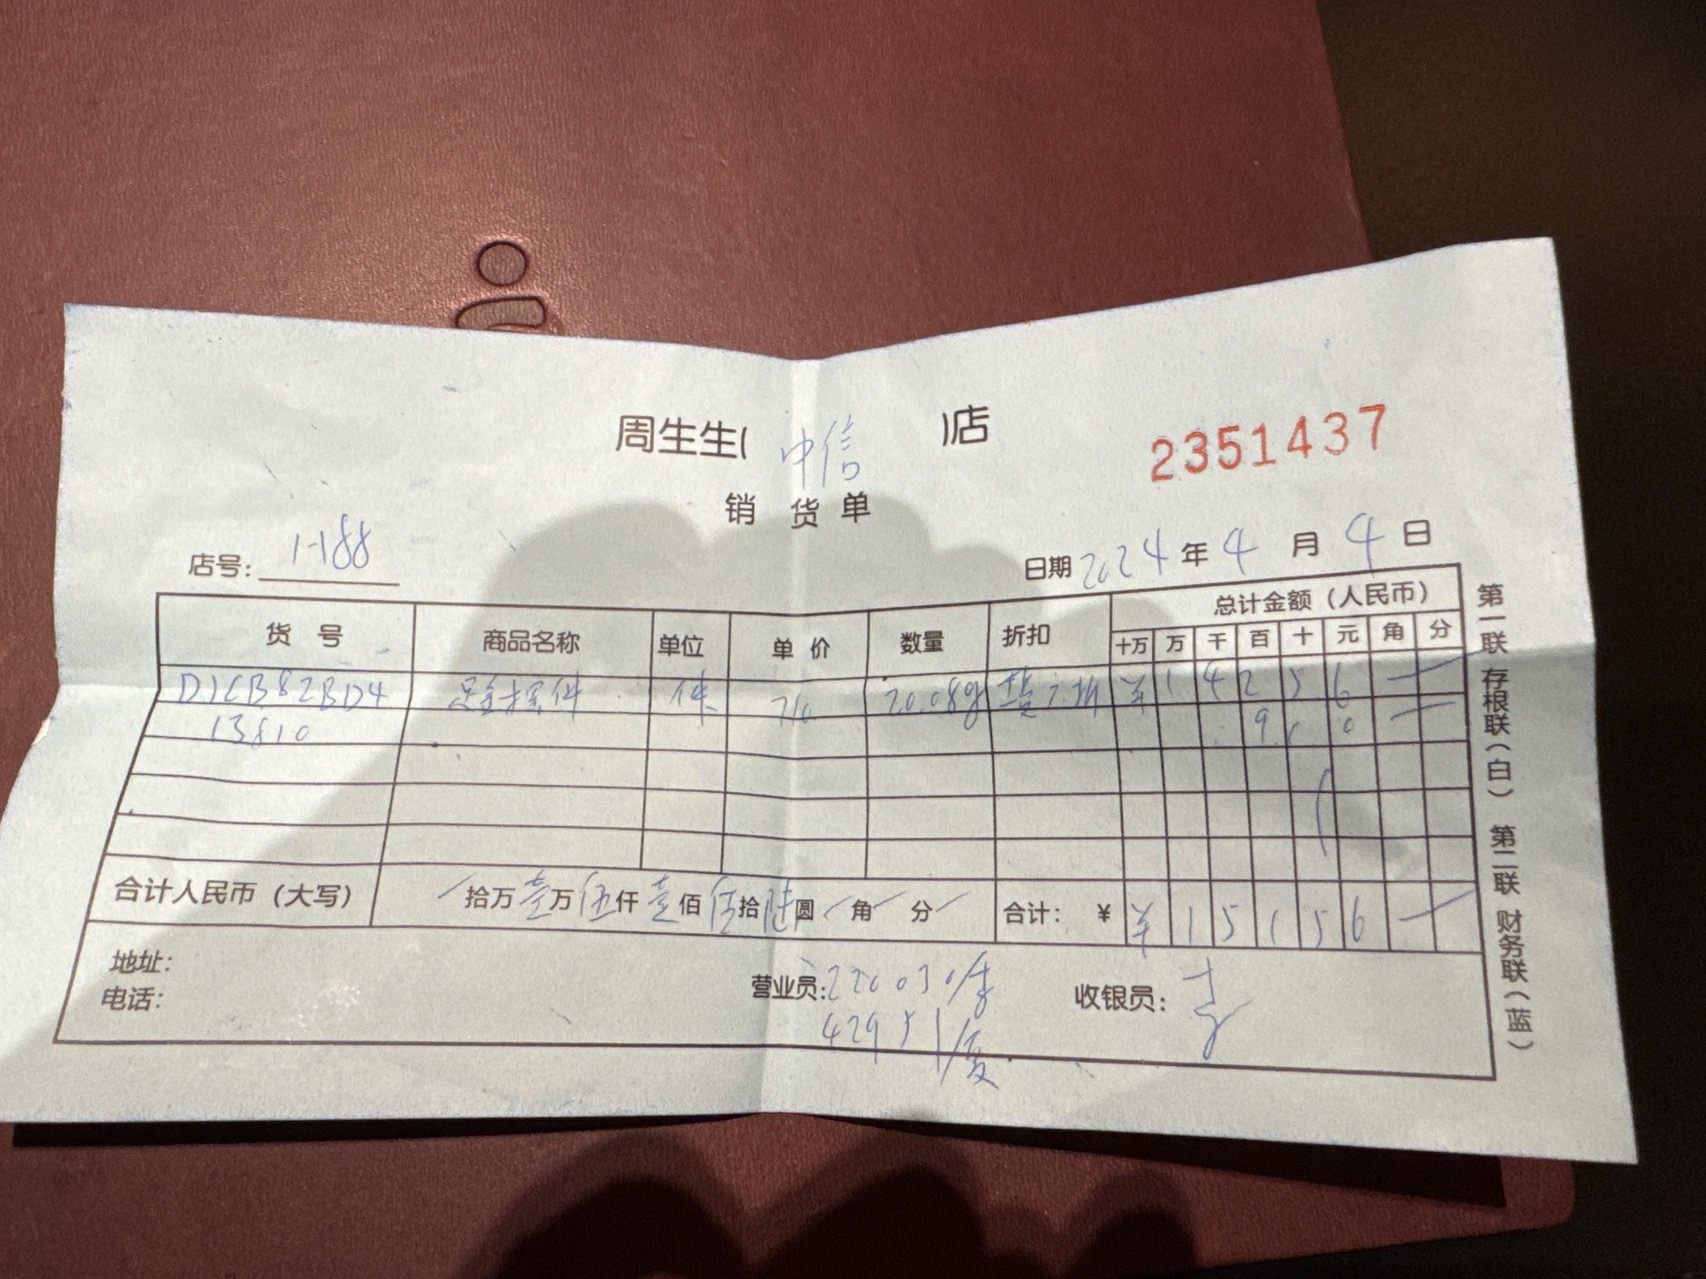 周生生( 中信 )店
2351437
销 货 单
店号: 1-188
日期 2024 年 4 月 4 日
货 号 商品名称 单位 单 价 数量 折扣 总计金额 (人民币)
十万 万 千 百 十 元 角 分
足金 件 件 710 20.08g ¥ 1 4 2 5 6
13810 9 0
合计人民币 (大写) 拾万 壹 万 伍 仟 壹 佰 伍 拾 陆 圆 角 分 合计: ¥ ¥ 1 5 1 5 6
地址:
电话:
营业员:
收银员:
第一联 存根联(白) 第二联 财务联(蓝)